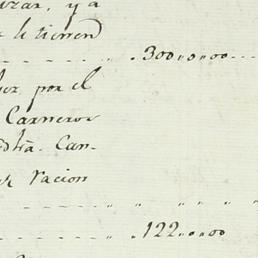 zar, y a
le tienen
300„00„00
por el
Carneros
dha. Can-
racion
„ „ „
122„00„00